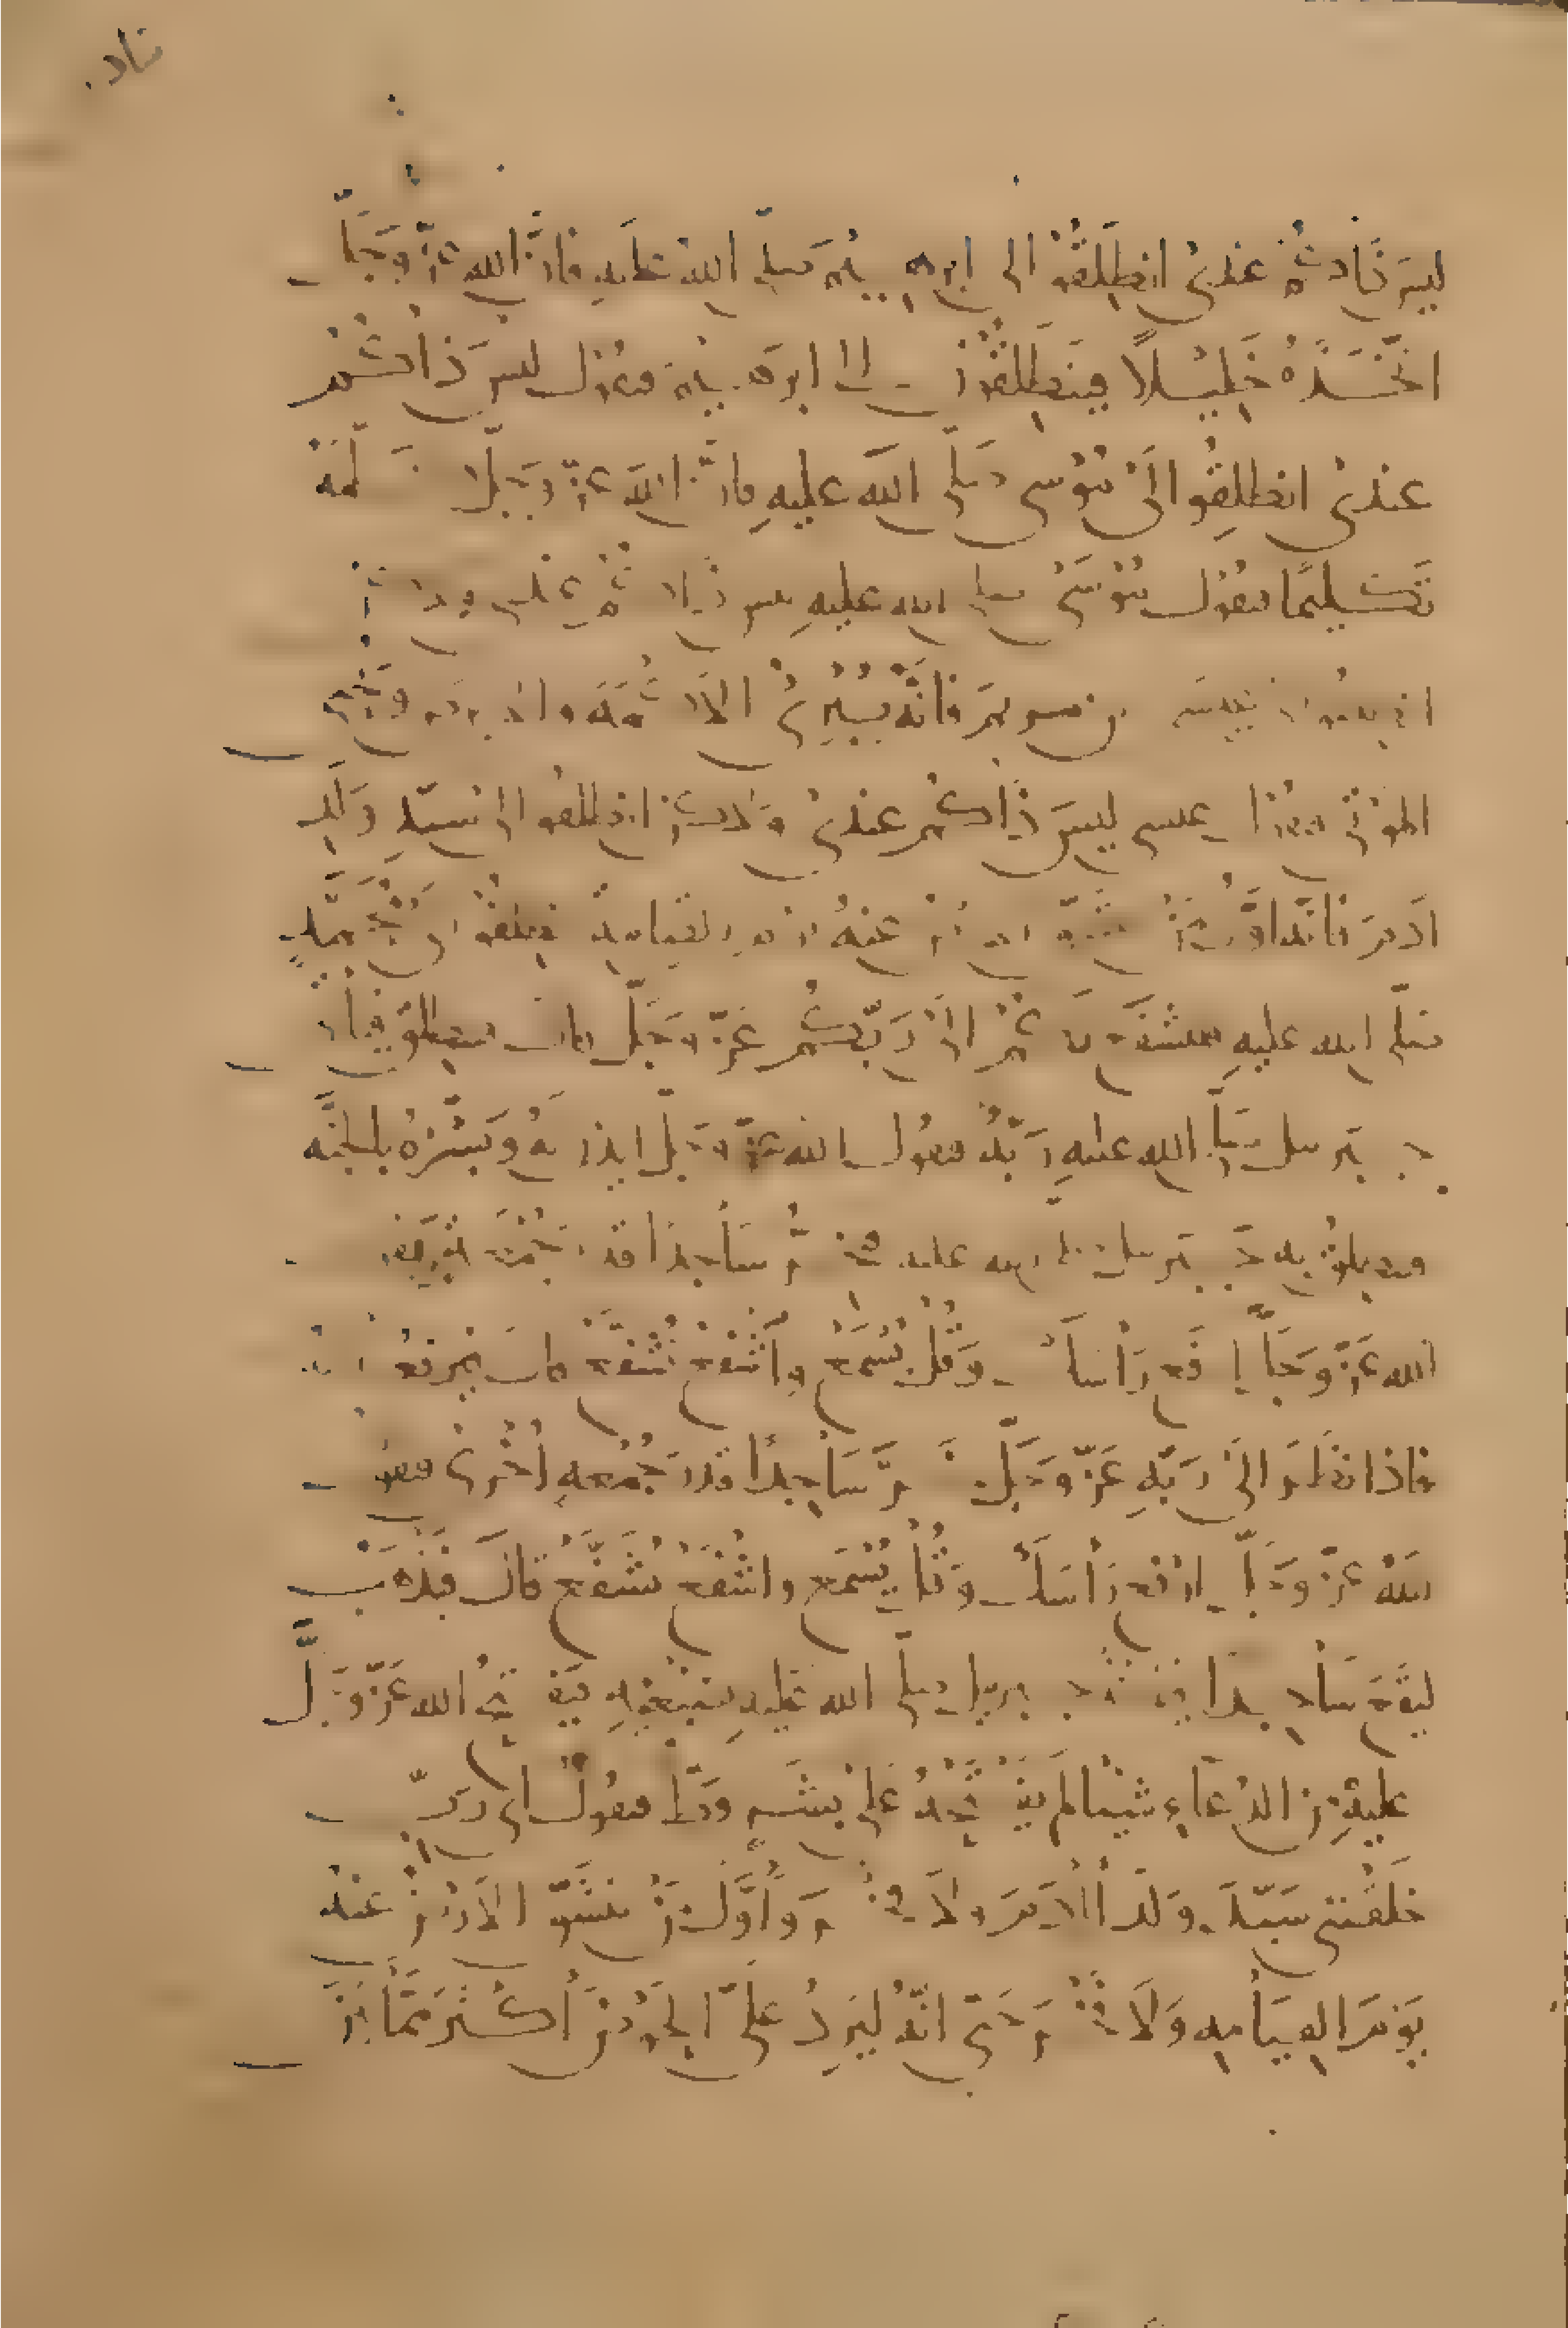 ليس ذَاكُمْ عِندي انطَلِقُوا الى ابرهيمَ صلّى اللهُ عليهِ فانَّ الله عزّ وجَلَّ
اتَّخَذَهُ خَلِيْلًا فينَطلِقُوْنَ الى ابرَهيْمَ فيقُوْل ليسَ ذاكُمْ
عِنديْ انطلِقُوا الىْ مُوْسى صَلّى اللهُ عليهِ فانَّ اللهَ عزّ وجَلّ كَلّمَهُ
تَكْلِيمًا فيقُوْل مُوْسَىْ صلى الله عليهِ ليس ذَاكُمْ عندي ولكن
انطلقوا الى عِيسَى بن مريمَ فانَّهُ يُبْرِئُ الاَكْمَهَ والابرصَ ويُحْيِي
الموْتىْ فيقُوْل عيسى ليسَ ذَاكُم عِنديْ ولكنْ انطلقُوا الىْ سَيّدِ وَلَدِ
آدَمَ فانَّهُ اوَّلُ مَنْ تنْشَقُّ الارضُ عنهُ يوم القيامةِ انطلقُوا الى مُحَمَّدٍ
صَلّى الله عليهِ فليَشْفَعْ لَكُمْ الىْ رَبّكُمْ عَزّ وجَلّ قال فينطلقُ فياْتي
جبريل صَلّى الله عليهِ رَبَّهُ فيقُول اللهُ عزّ وجَلّ ايذن لَهُ وَبَشّرْهُ بالجنَّه
فينطلِقُ به جبريل صلى الله عليه فيخِرُّ سَاْجدًا قدرَ جُمْعَهٍ فيَقُول
الله عَزّ وجَلَّ ارْفَع رَأْسَكَ وَقُلْ يُسْمَعْ واَشْفَعْ تُشَفَّعْ قالَ فيرفعُ
فاذا نظَرَ الىْ رَبّهِ عَزّ وجَلّ خَرَّ سَاجِدًا قدرَ جُمُعهٍ اُخْرىْ فيقول
اللهُ عزّ وجَلَّ ارْفع رَأسَكَ وَقُلْ يُسْمَع واشْفَعْ تُشَفَّعْ قالَ فيَذهَبُ
ليَقَعَ سَاْجِدًا فيأخُذُ جبريل صلّى الله عَليهِ بضبْعَيْهِ فيَفْتَحُ الله عَزّ وجَلَّ
عليهِ مِن الدُعَاءِ شَيْئا لمْ يَفْتَحْهُ عَلىْ بشَرٍ قَطُّ فيقُوْلُ اى رَبّ
خَلَقْتَنى سَيّدَ وَلَدِ اْدَمَ ولاَ فخْرَ وَاَوَّلَ مَنْ تنْشَقُّ الارْضُ عنهُ
يَوْمَ القِيَاْمهِ وَلَا فَخْرَ حَتىّ انّهُ ليَرِدُ عَليّ الحَوْضَ اَكْثَرُ مِمَّا بَيْنَ